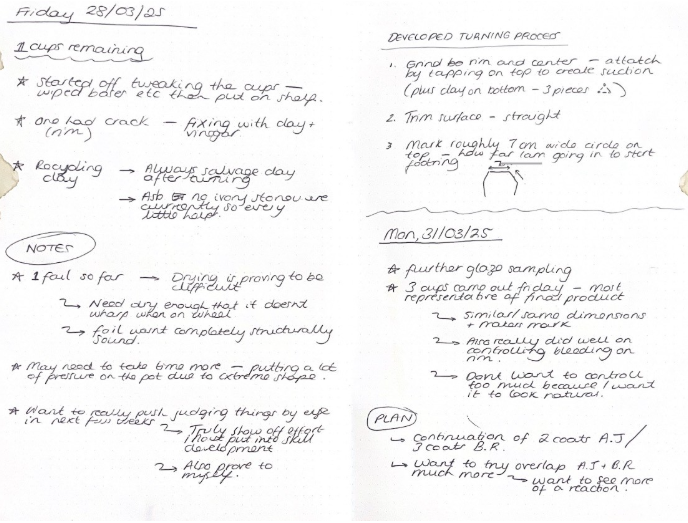 Friday 28/03/25
11 cups remaining
* Started off tweaking the cups –
wiped bases etc then put on shelf.
* One had crack – fixing with clay +
(rim) vinegar.
* Recycling → Always salvage clay
clay after turning
→ Asb no ivory stoneware
currently so every
little helps.
NOTES
* 1 fail so far → Drying is proving to be
difficult
→ Need dry enough that it doesnt
wharp when on wheel
→ foil wasnt completely structurally
sound.
* May need to take time more – putting a lot
of pressure on the pot due to extreme shape.
* Want to really push judging things by eye
in next few weeks
→ Truly show off effort
ihave put into skill
development
→ Also prove to
myself.
DEVELOPED TURNING PROCESS
1. Grind bo rim and center – attatch
by tapping on top to create suction
(plus clay on bottom – 3 pieces)
2. Trim surface – straight
3 Mark roughly 7cm wide circle on
top – how far iam going in to start
footring
Mon, 31/03/25
* further glaze sampling
* 3 cups came out friday – most
representative of final product
→ Similar/same dimensions
+ makers mark
→ Also really did well on
controlling bleeding on
rim.
→ Dont want to controll
too much because I want
it to look natural.
PLAN
→ continuation of 2 coats A.J /
3 coats B.R.
→ Want to try overlap A.J + B.R
much more → want to see more
of a reaction.